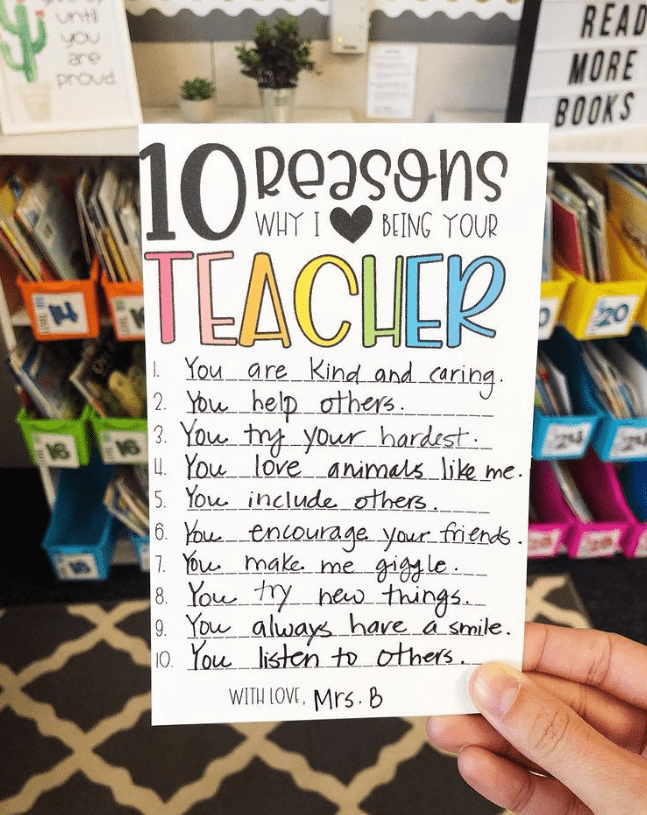 until
you
are
proud
READ
MORE
BOOKS
10 Reasons
WHY I ♥ BEING YOUR
TEACHER
1. You are kind and caring.
2. You help others.
3. You try your hardest.
4. You love animals like me.
5. You include others.
6. You encourage your friends.
7. You make me giggle.
8. You try new things.
9. You always have a smile.
10. You listen to others.
WITH LOVE, Mrs. B
14
20
16
16
24
24
18
20
20